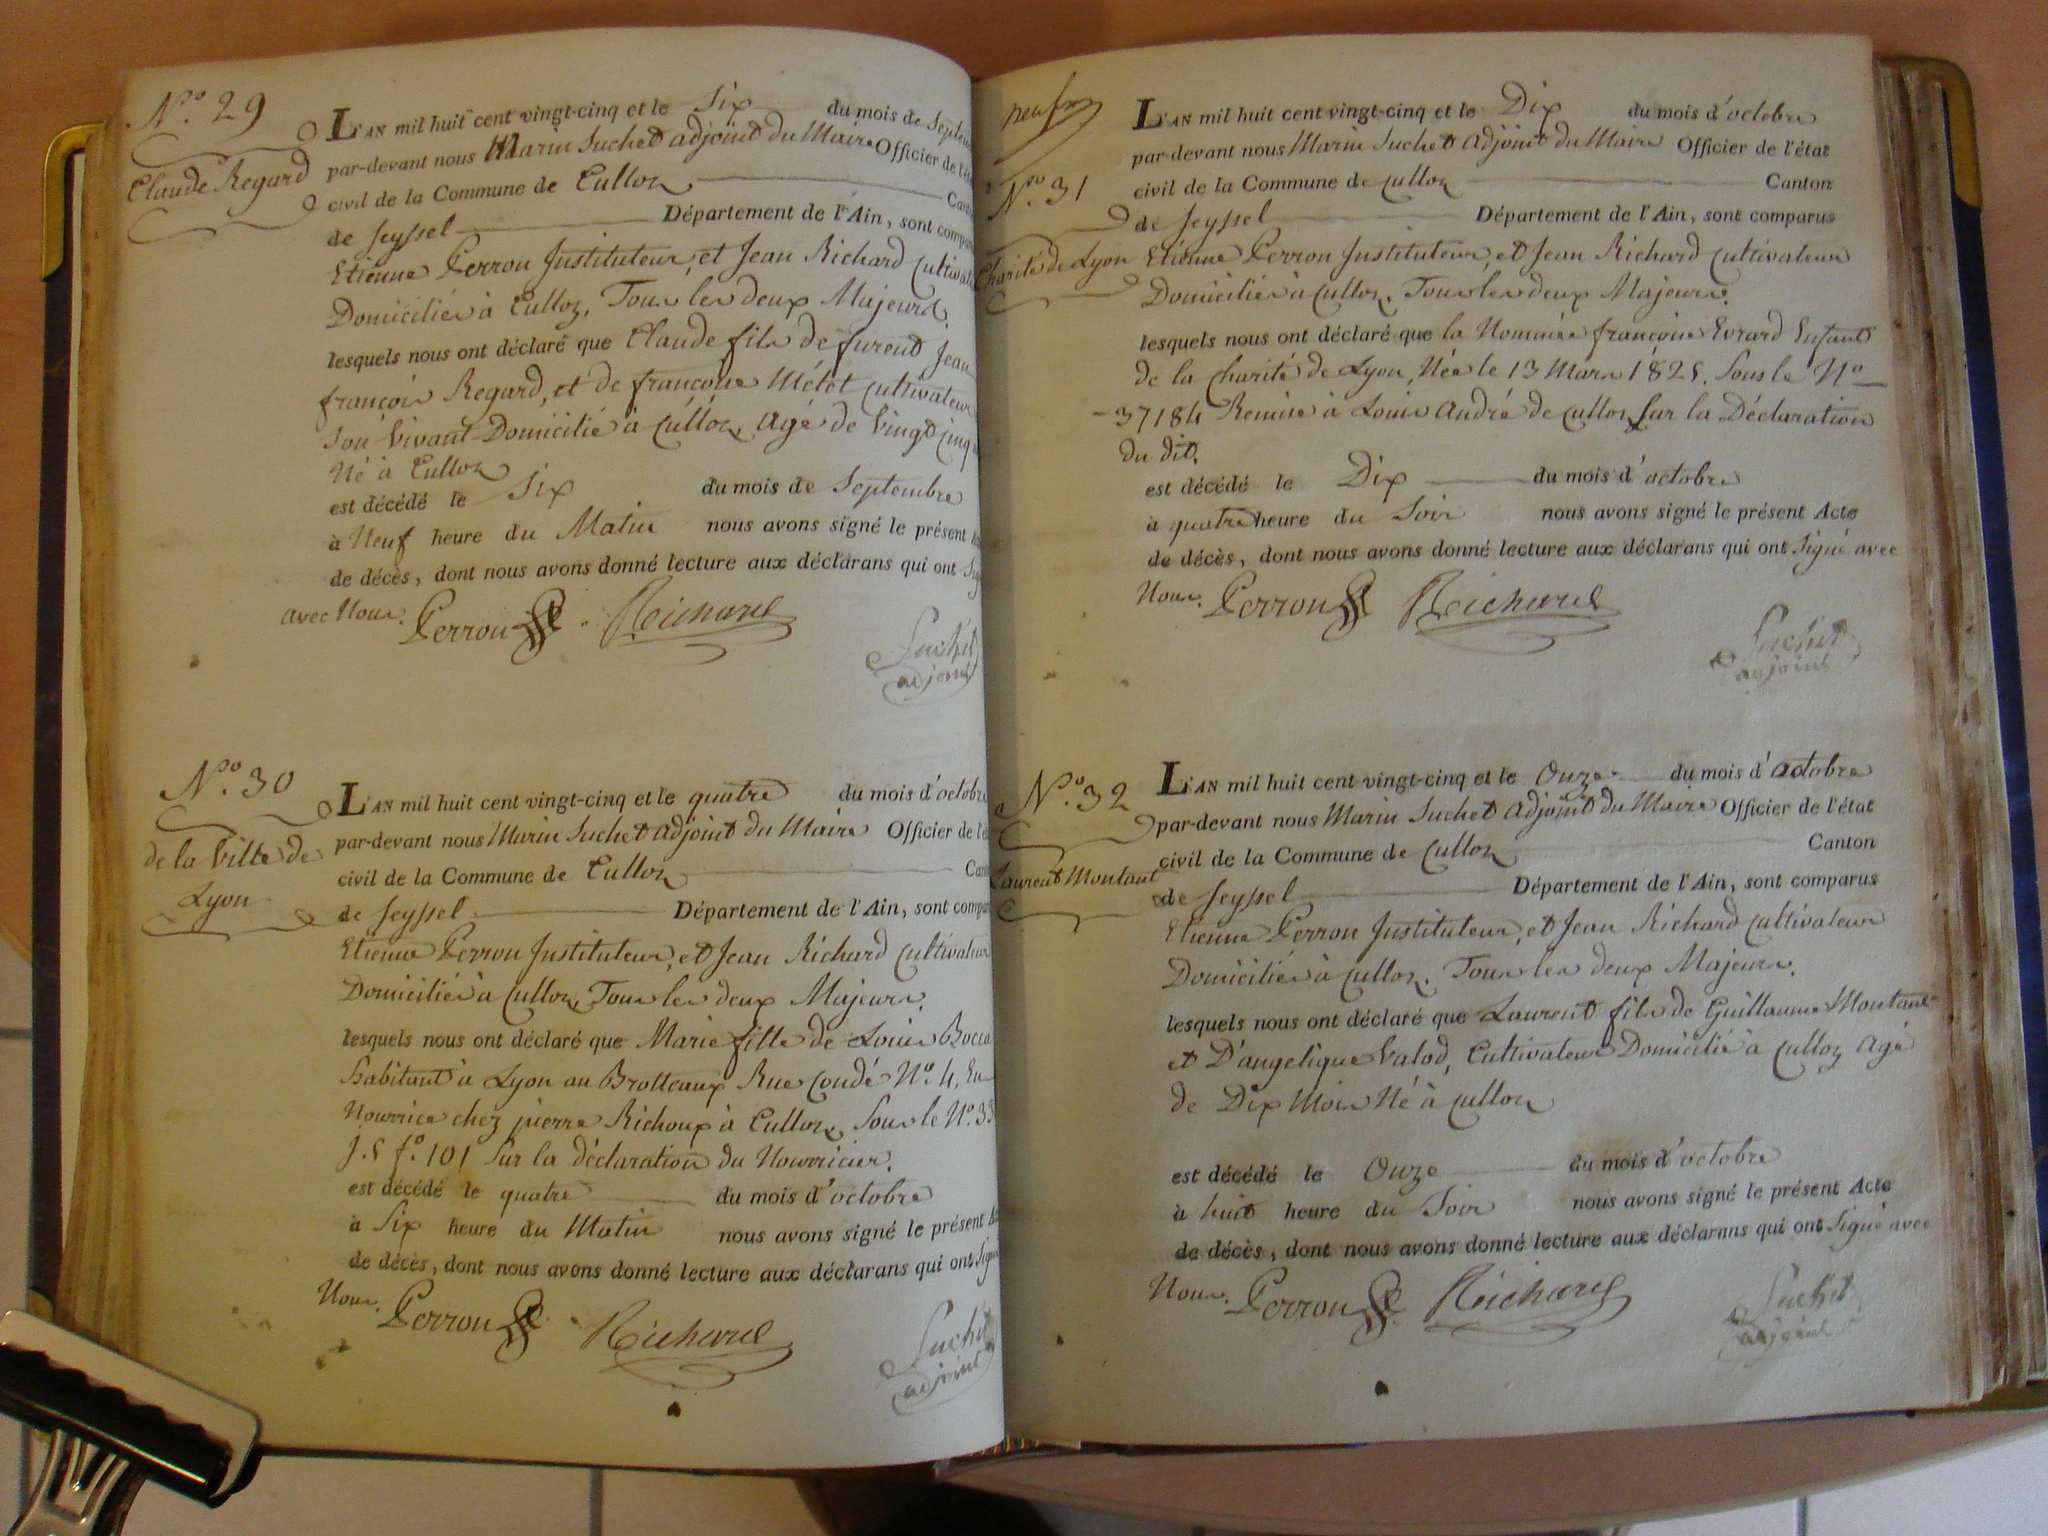 N.o 29
Claude Regard
L'AN mil huit cent vingt-cinq et le Six du mois de Septem
par-devant nous Marin Suchet adjoint du Maire Officier de l'ét
civil de la Commune de Culloz Canto
de Seyssel Département de l'Ain, sont compar
Etienne Perron Instituteur, et Jean Richard Cultivat
Domiciliés à Culloz, Tous les deux Majeurs.
lesquels nous ont déclaré que Claude fils de furent Jean
françois Regard, et de françoise Métét Cultivateur
Son Vivant Domicilié à Culloz, Agé de Vingt cinq
Né à Culloz
est décédé le Six du mois de Septembre
à Neuf heure du Matin nous avons signé le présent
de décès, dont nous avons donné lecture aux déclarans qui ont Sig
avec Nous. Perron Richard
Suchet
adjoint
N.o 30
de la Ville de
Lyon
L'AN mil huit cent vingt-cinq et le quatre du mois d'octobre
par-devant nous Marin Suchet adjoint du Maire Officier de l'é
civil de la Commune de Culloz Cant
de Seyssel Département de l'Ain, sont compar
Etienne Perron Instituteur, et Jean Richard Cultivateur
Domiciliés à Culloz, Tous les deux Majeurs.
lesquels nous ont déclaré que Marie fille de Louis Bocca
Habitant à Lyon au Brotteaux Rue Condé N.o 4, En
Nourrice chez pierre Richoux à Culloz, Sous le N.o 33
f.o 101 Sur la déclaration du Nourricier.
est décédé le quatre du mois d'octobre
à Six heure du Matin nous avons signé le présent
de décès, dont nous avons donné lecture aux déclarans qui ont Sign
Nous. Perron Richard
Suchet
adjoint
neuf
N.o 31
Charité de Lyon
L'AN mil huit cent vingt-cinq et le Dix du mois d'octobre
par-devant nous Marin Suchet Adjoint du Maire Officier de l'état
civil de la Commune de Culloz Canton
de Seyssel Département de l'Ain, sont comparus
Etienne Perron Instituteur, et Jean Richard Cultivateur
Domiciliés à Culloz, Tous les deux Majeurs.
lesquels nous ont déclaré que la Nommée françoise Evrard Enfant
de la Charité de Lyon, Née le 13 Mars 1825. Sous le N.o
37184 Remise à Louis André de Culloz Sur la Déclaration
du dit.
est décédé le Dix du mois d'octobre
à quatre heure du Soir nous avons signé le présent Acte
de décès, dont nous avons donné lecture aux déclarans qui ont Signé avec
Nous. Perron Richard
Suchet
adjoint
N.o 32
Laurent Montant
L'AN mil huit cent vingt-cinq et le Onze du mois d'octobre
par-devant nous Marin Suchet Adjoint du Maire Officier de l'état
civil de la Commune de Culloz Canton
de Seyssel Département de l'Ain, sont comparus
Etienne Perron Instituteur, et Jean Richard Cultivateur
Domiciliés à Culloz. Tous les deux Majeurs.
lesquels nous ont déclaré que Laurent fils de Guillaume Montant
et D'angelique Valod, Cultivateur Domicilié à Culloz Agé
de Dix Mois Né à Culloz
est décédé le Onze du mois d'octobre
à huit heure du Soir nous avons signé le présent Acte
de décès, dont nous avons donné lecture aux déclarans qui ont Signé avec
Nous. Perron Richard
Suchet
adjoint